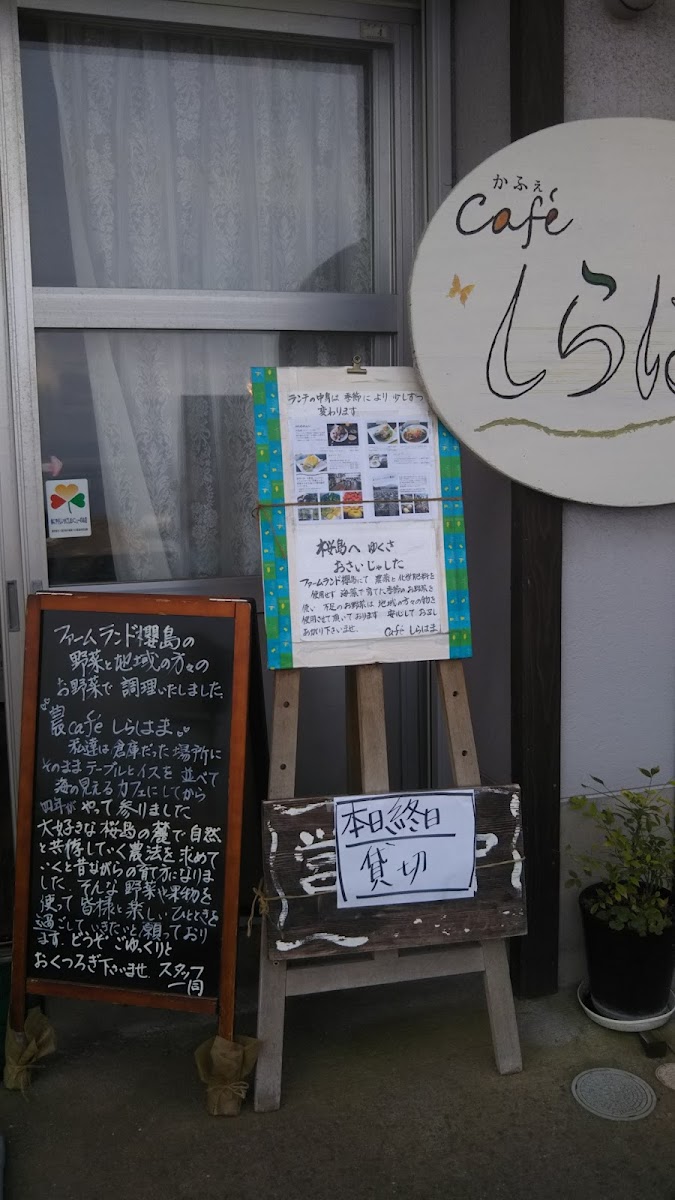 かふぇ
Café
しらは
ランチの中身は 季節により 少しずつ
変わります
桜島へ ゆくさ
おさいじゃした
ファームランド櫻島にて 農薬と化学肥料を
使用せず 海藻で育てた季節のお野菜を
使い 不足のお野菜は 地域の方々の物を
使用させて頂いております。安心してお召し
お上り下さいませ。 Café しらはま
ファームランド櫻島の
野菜と地域の方々の
お野菜で 調理いたしました。
農café しらはま
私達は 倉庫だった場所に
そのままテーブルとイスを 並べて
海の見えるカフェにしてから
四年が やって参りました
大好きな桜島の麓で自然
と共存していく農法を求めて
いくと昔ながらの育て方になりま
した。そんな 野菜や果物を
使って 皆様と楽しいひとときを
過ごしていきたいと願っており
ます。どうぞ ごゆっくりと
おくつろぎ下さいませ。 スタッフ
一同
本日終日
貸切
営 中